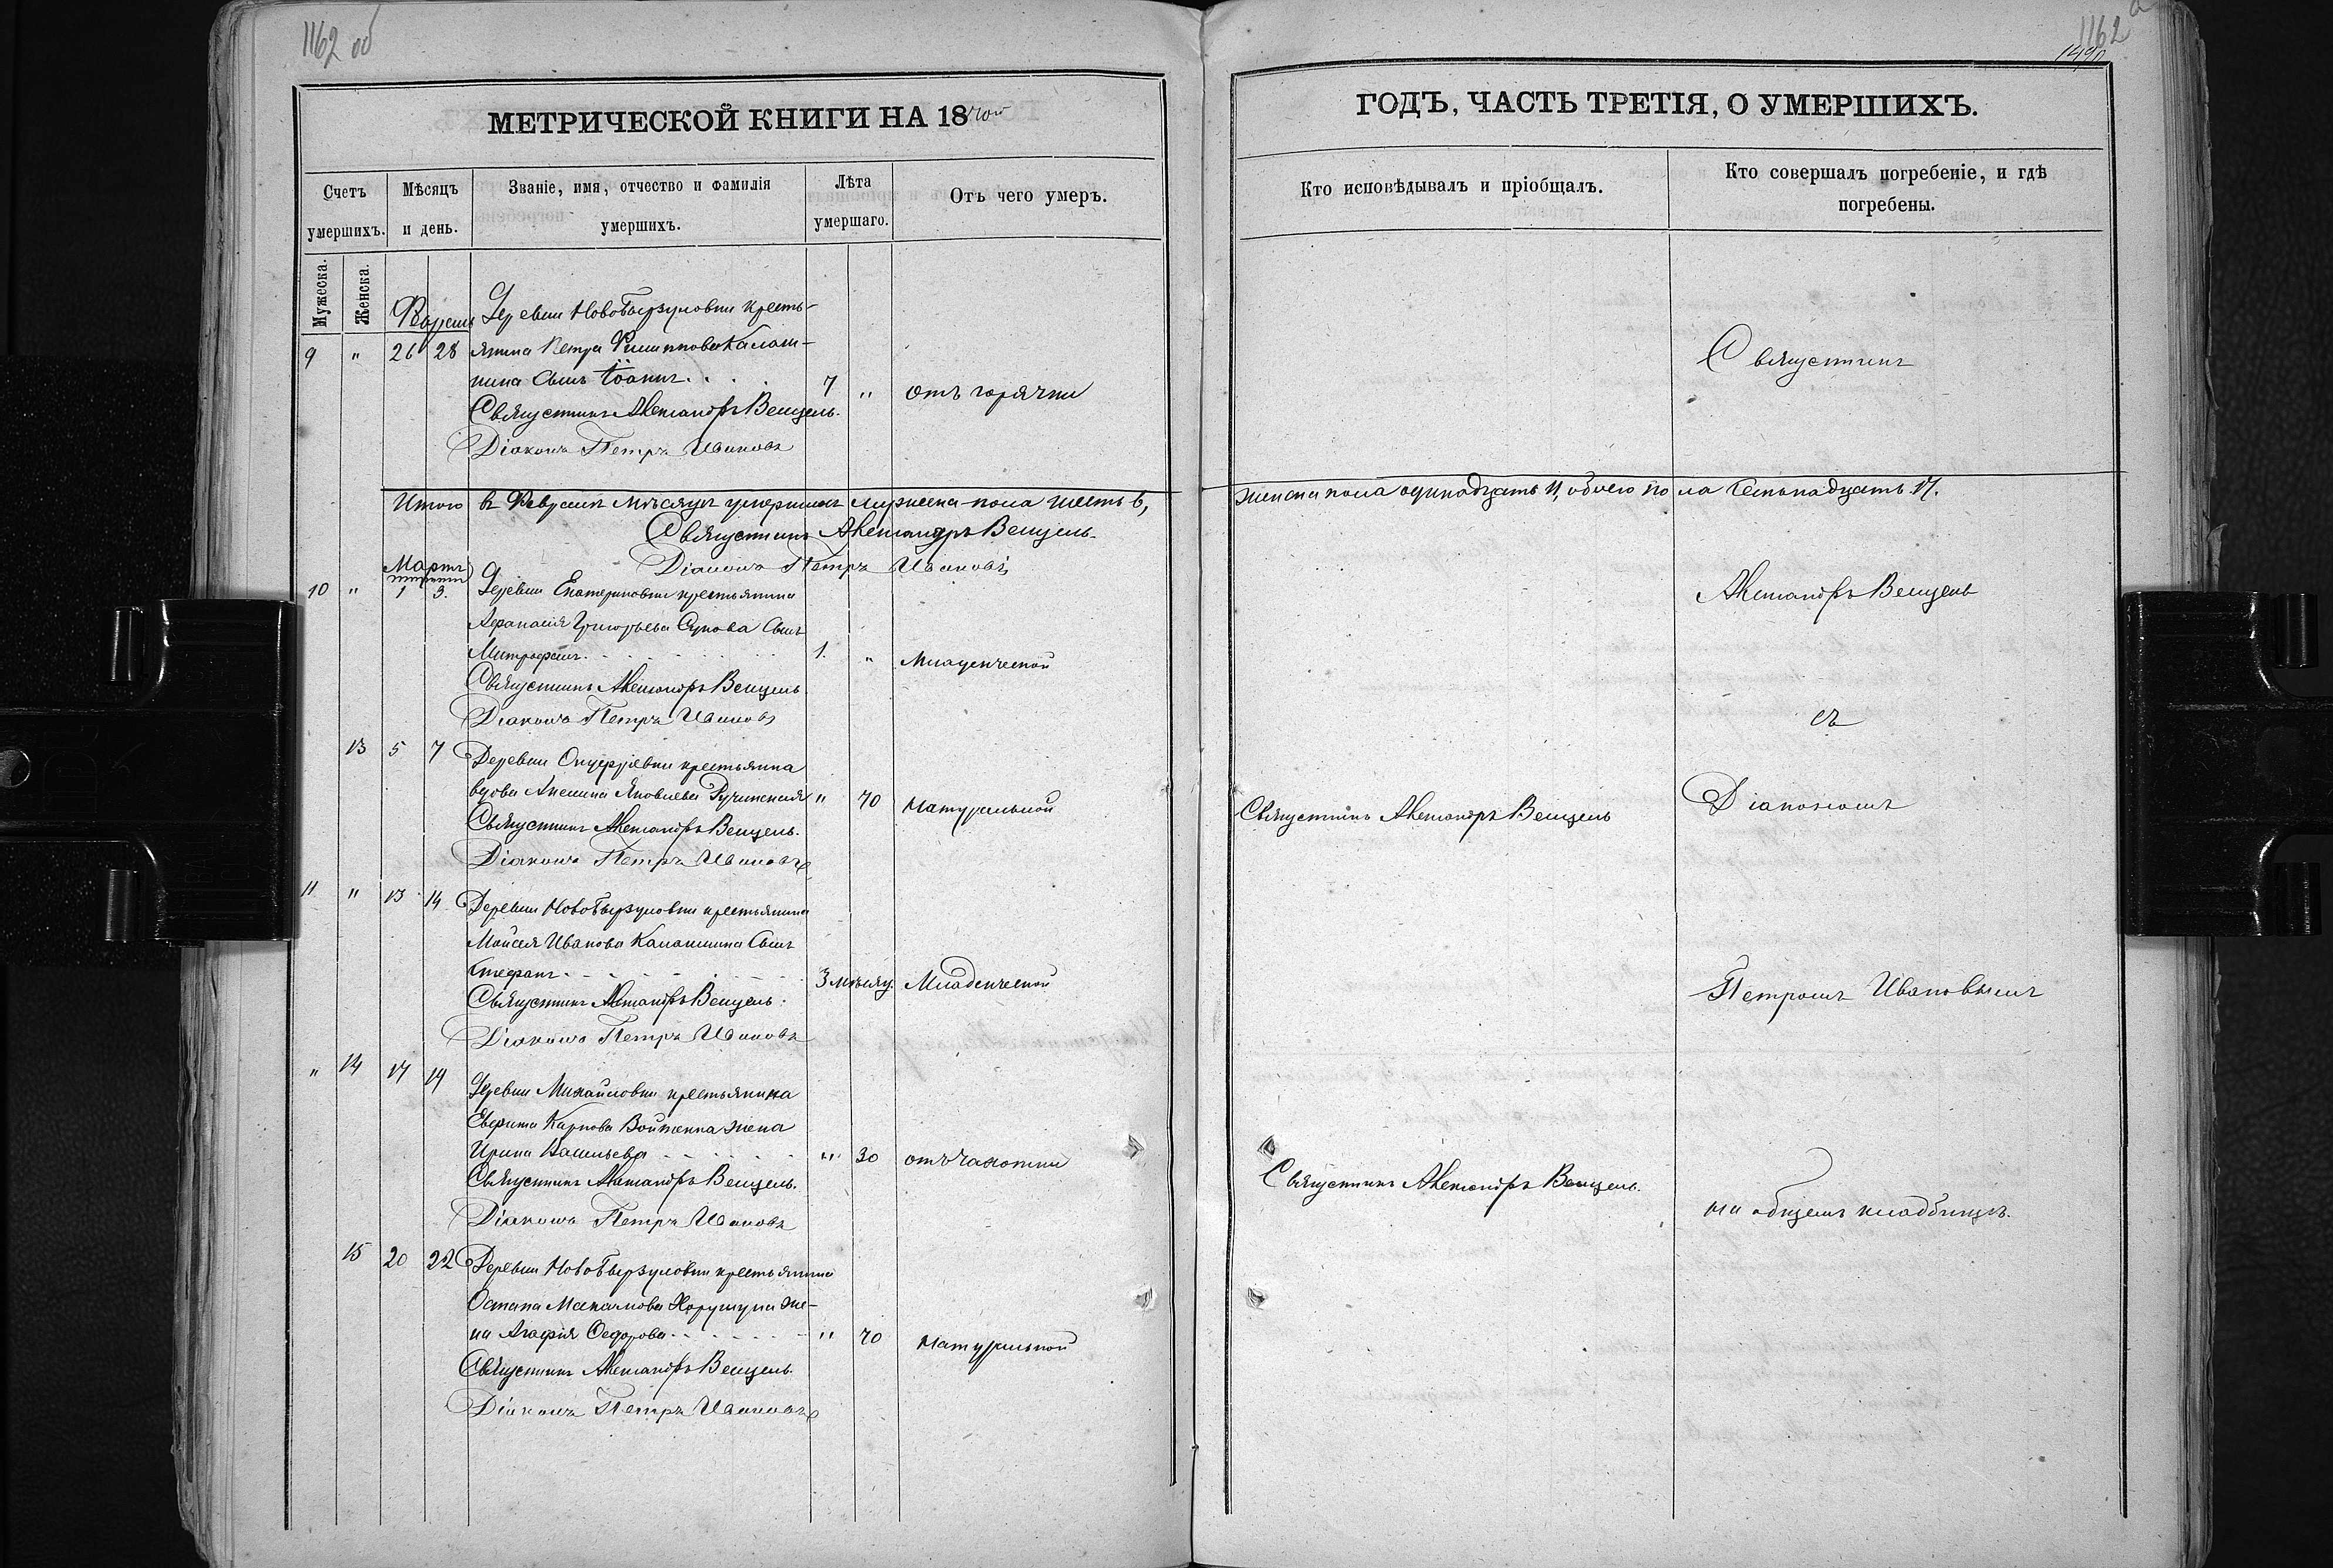 1162 об
1162
МЕТРИЧЕСКОЙ КНИГИ НА 1870й
ГОДЪ, ЧАСТЬ ТРЕТІЯ, О УМЕРШИХЪ.
Счетъ умершихъ.
Мѣсяцъ и день.
Званіе, имя, отчество и фамилія умершихъ.
Лѣта умершаго.
Отъ чего умеръ.
Кто исповѣдывалъ и пріобщалъ.
Кто совершалъ погребеніе, и гдѣ погребены.
Мужеска.
Женска.
Февраль
Деревни НовоБырзуловки кресть-
9 " 26 28 янина Петра Филиппова Калаш-
нина сынъ Іоаннъ. . . 7 " отъ горячки
Священникъ Александръ Венцель.
Діаконъ Петръ Ивановъ
Священникъ
Итого въ Февралѣ мѣсяцѣ умершихъ мужеска пола шесть 6,
женска пола одинадцать 11, обоего пола семьнадцать 17.
Священникъ Александръ Венцель.
Діаконъ Петръ Ивановъ
Мартъ
10 " 1 3. Деревни Екатериновки крестьянина
Афанасія Григорьева Сукова сынъ
Митрофанъ. 1. " Младенческой
Священникъ Александръ Венцель
Діаконъ Петръ Ивановъ
Александръ Венцель
съ
13 5 7 Деревни Онуфріевки крестьянка
вдова Аксинія Яковлева " 70 Натуральной
Священникъ Александръ Венцель.
Діаконъ Петръ Ивановъ
Священникъ Александръ Венцель
Діакономъ
11 " 13 14 Деревни НовоБырзуловки крестьянина
Моисея Иванова Калашнина сынъ
Стефанъ 3 мѣсяц. Младенческой
Священникъ Александръ Венцель.
Діаконъ Петръ Ивановъ
Петромъ Ивановымъ
" 14 17 19 Деревни Михайловки крестьянина
Евфима Карпова Войтенка жена
Ирина Васильева " 30 отъ чахотки
Священникъ Александръ Венцель.
Діаконъ Петръ Ивановъ
Священникъ Александръ Венцель.
на общемъ кладбищѣ.
15 20 22 Деревни НовоБырзуловки крестьянина
Остапа Максимова же-
на Агафія Федорова " 70 Натуральной
Священникъ Александръ Венцель.
Діаконъ Петръ Ивановъ